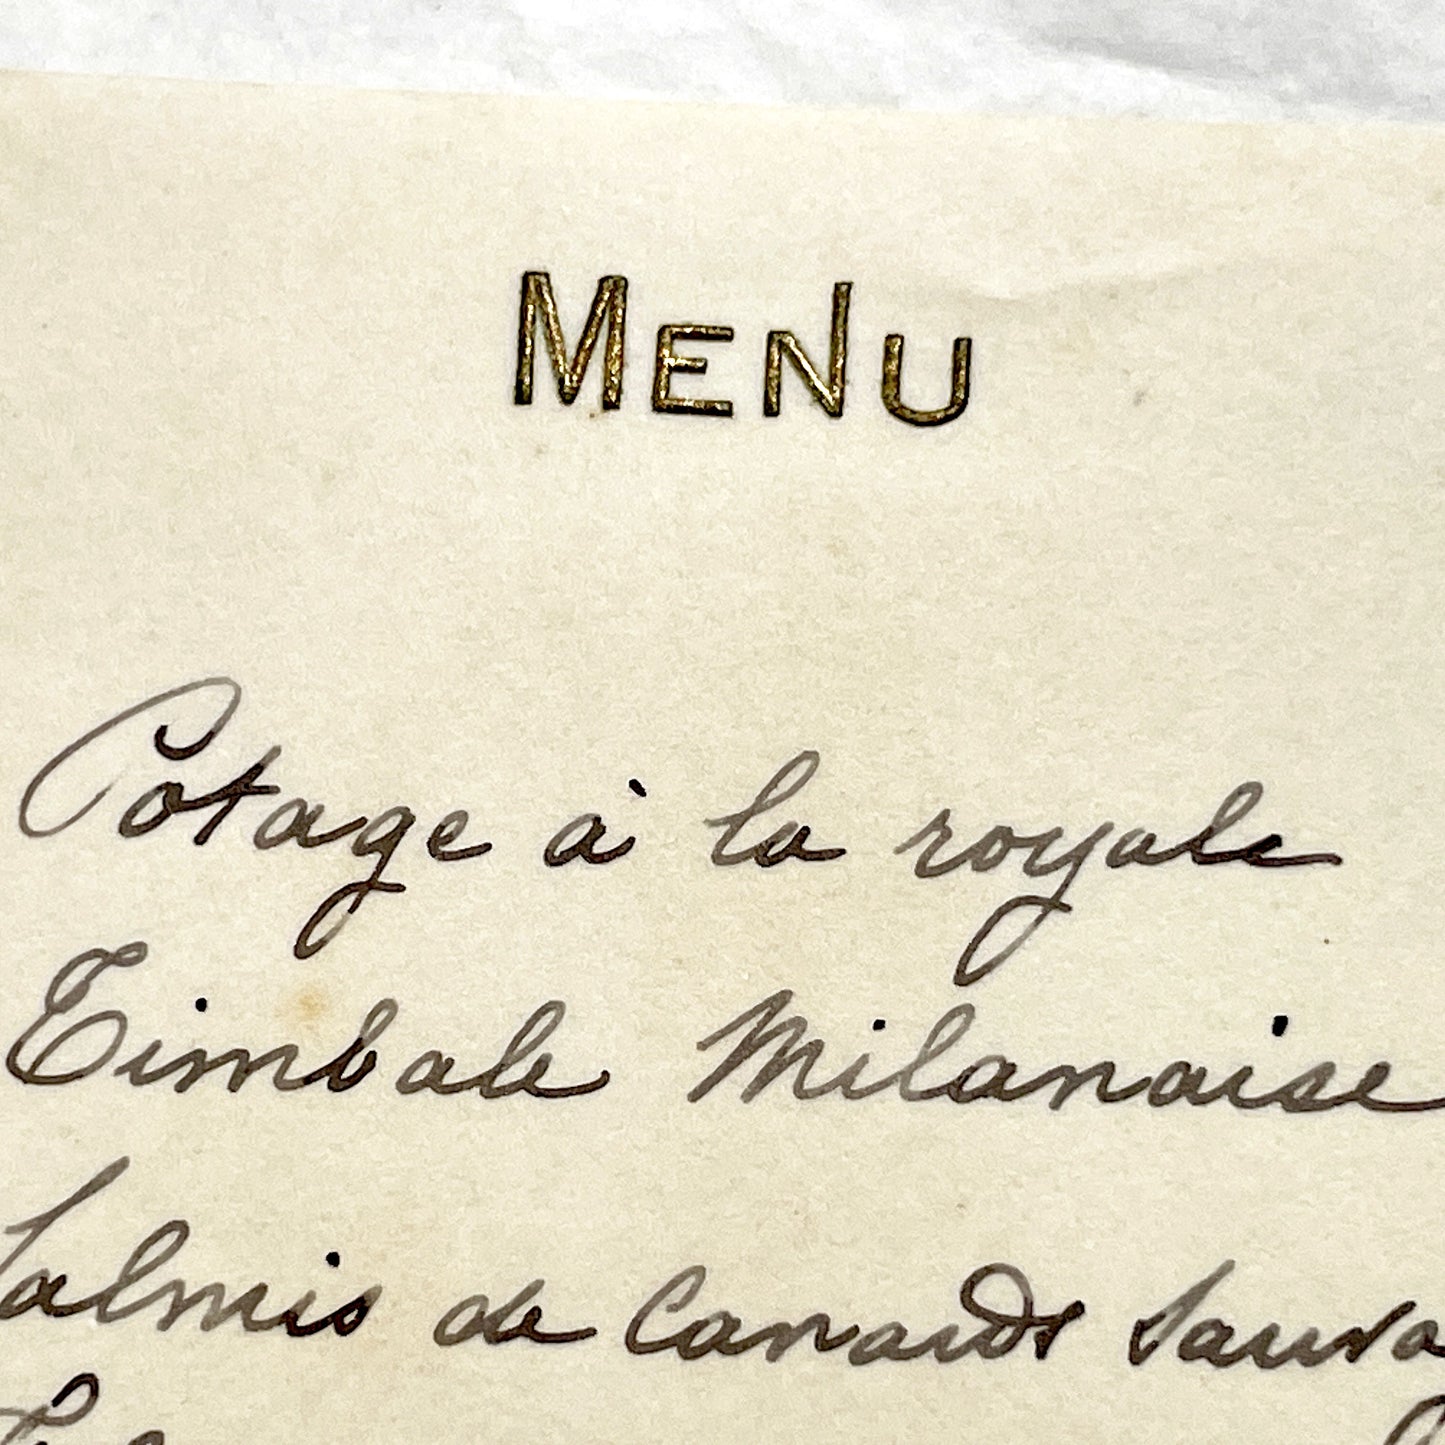 MENU
Potage à la royale
Timbale Milanaise
Salmis de Canards Sauva